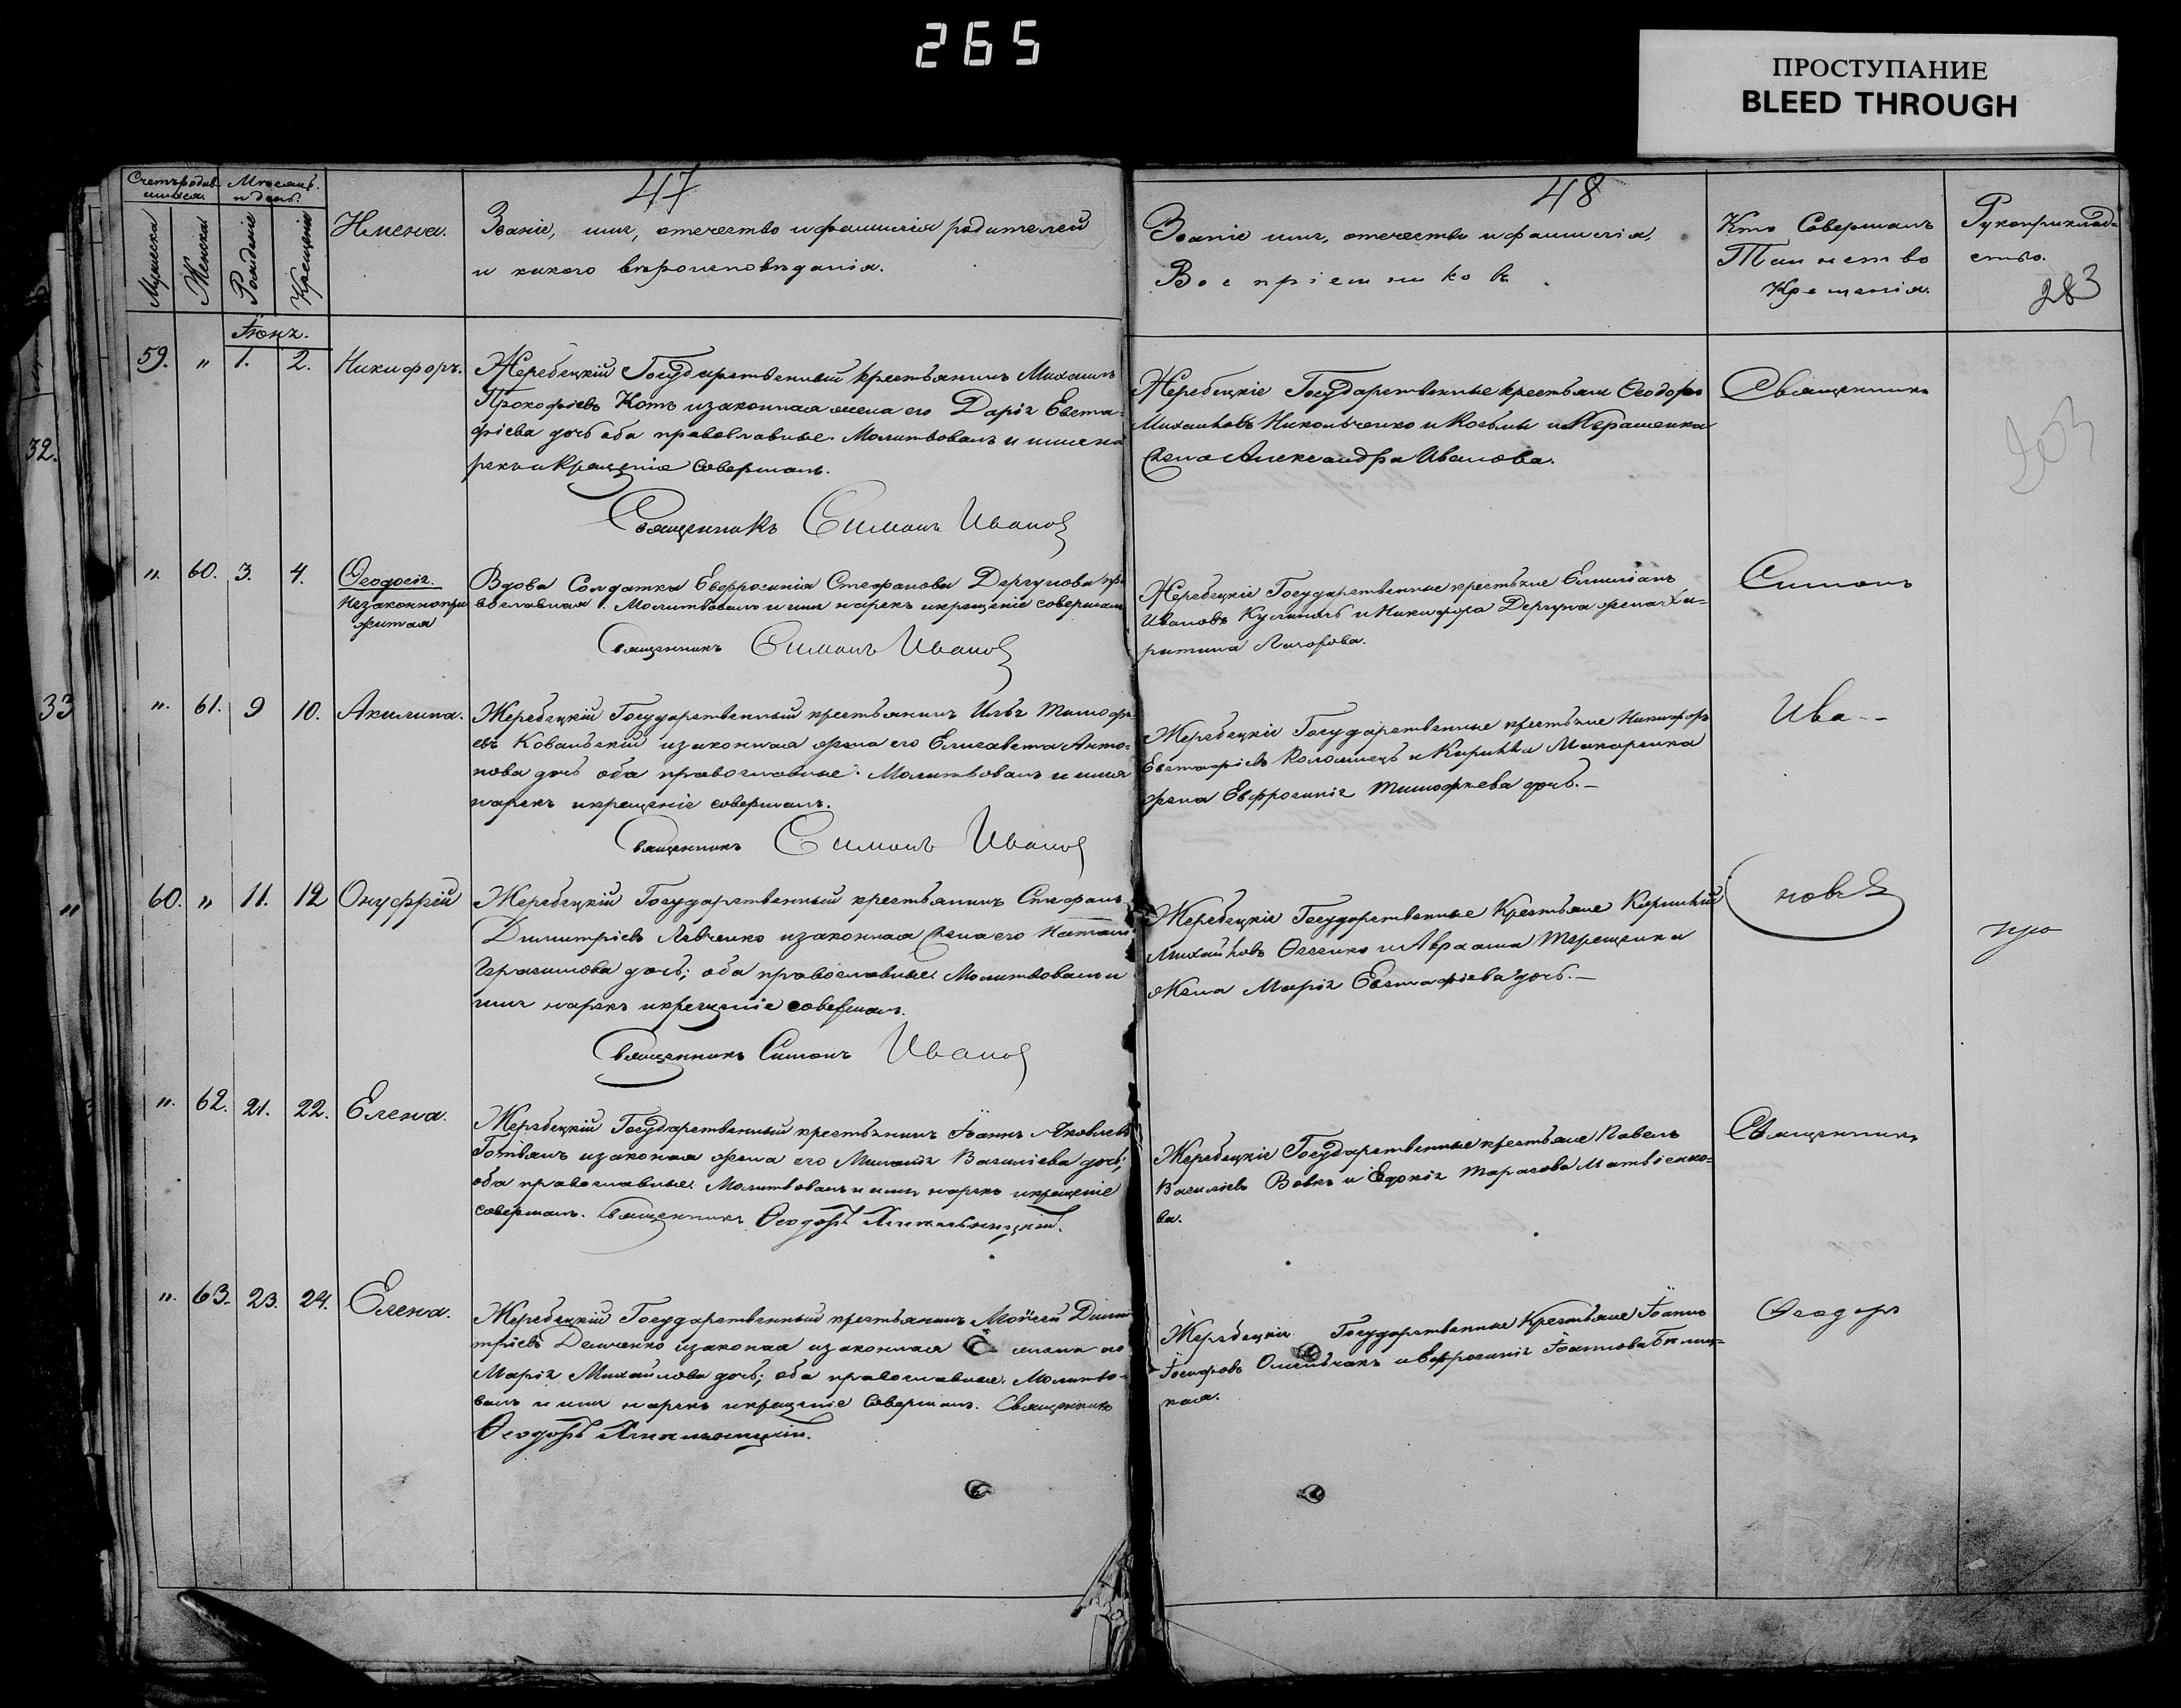 265
ПРОСТУПАНИЕ
BLEED THROUGH
47
Счетъ родив-
шихся.
Мѣсяцъ
и день.
Мужеска
Женска
Рожденіе
Крещеніе
Имена.
Званіе, имя, отечество и фамилія родителей
и какого вѣроисповѣданія.
Іюнь.
59. " 1. 2. Никифоръ.
Жеребецкій Государственный крестьянинъ Михаилъ
Прокофіевъ Котъ и законная жена его Дарія Евста-
фіева дочь оба православные. Молитвовалъ и имя на
рекъ и Крещеніе совершалъ.
Священникъ Симонъ Ивановъ
". 60. 3. 4. Ѳеодосія.
незаконнопри
житая
Вдова Солдатка Евфросинія Стефанова Дергунова пра
вославная. Молитвовалъ и имя нарекъ и крещеніе совершалъ
Священникъ Симонъ Ивановъ
". 61. 9 10. Акилина.
Жеребецкій Государственный крестьянинъ Илья Тимофе
евъ Ковальскій и законная жена его Елисавета Анто-
нова дочь оба православные. Молитвовалъ и имя
нарекъ и крещеніе совершалъ.
Священникъ Симонъ Ивановъ
60. " 11. 12 Онуфрій
Жеребецкій Государственный крестьянинъ Стефанъ
Димитріевъ Левченко и законная жена его
Герасимова дочь; оба православные. Молитвовалъ и
имя нарекъ и крещеніе совершалъ.
Священникъ Симонъ Ивановъ
". 62. 21. 22. Елена.
Жеребецкій Государственный крестьянинъ Іоаннъ Яковлевъ
и законая жена его Меланія Василіева дочь;
оба православные. Молитвовалъ и имя нарекъ и крещеніе
совершалъ. Священникъ Ѳеодоръ
". 63. 23. 24. Елена.
Жеребецкій Государственный крестьянинъ Моѵсей Дими
тріевъ Демченко и законая и законная
Марія Михайлова дочь; оба православные. Молитво-
валъ и имя нарекъ и крещеніе совершалъ. Священникъ
Ѳеодоръ
48
Званіе имя, отечество и фамилія,
Воспріемниковъ.
Кто Совершалъ
Таинство
Крещенія.
Рукоприклад-
ство.
283
Жеребецкіе Государственные крестьяне Ѳеодоръ
Михайловъ Никольченко и Козьмы
жена Александра Иванова.
Священникъ
Жеребецкіе Государственные крестьяне Емиліанъ
Ивановъ и Никифора Дергуна жена Ха-
ритина
Симонъ
Жеребецкіе Государственные крестьяне Никифоръ
Евстафіевъ Коломіецъ и Кирилла Макаренка
жена Евфросинія Тимофѣева дочь.—
Ива--
Жеребецкіе Государственные Крестьяне
Михайловъ и Авраама Терещенка
жена Марія Евстафіева дочь.—
новъ
про
Жеребецкіе Государственные крестьяне Павелъ
Василіевъ Вовкъ и Евдокія Тарасова Матвіенко-
ва.
Священникъ
Жеребецкіе Государственные Крестьяне Іоаннъ
Іосифовъ Омельчакъ и Евфросинія Іоаннова
кая.
Ѳеодоръ
32.
33
"